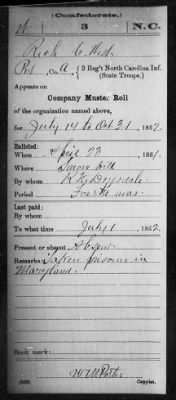 (Confederate.)
3 N.C.
Rich C West
Pvt, Co. A, 3 Reg't North Carolina Inf.
(State Troops.)
Appears on
Company Muster Roll
of the organization named above,
for July 14 to Oct 31, 1862.
Enlisted:
When April 23, 1861.
Where Snow hill
By whom R. H. Drysdale
Period For the war
Last paid:
By whom
To what time July 1, 1862.
Present or absent Absent
Remarks: Taken prisoner in
Maryland.
Book mark:
(642)
Copyist.